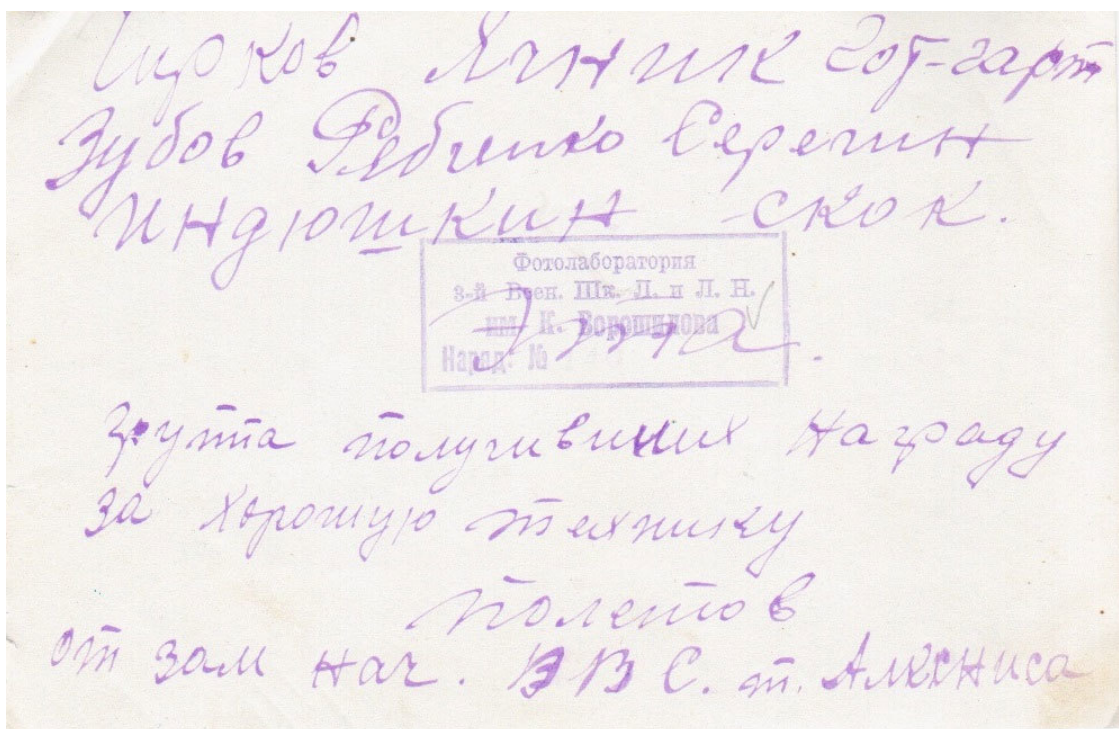 Чирков Линник Гот-гарт
Зубов Рябченко Серегин
Индюшкин -скок.
Фотолаборатория
3-й Воен. Шк. Л. и Л. Н.
им. К. Ворошилова
Наряд: №
группа получивших награду
за хорошую технику
полетов
от зам нач. ВВС. т. Алксниса